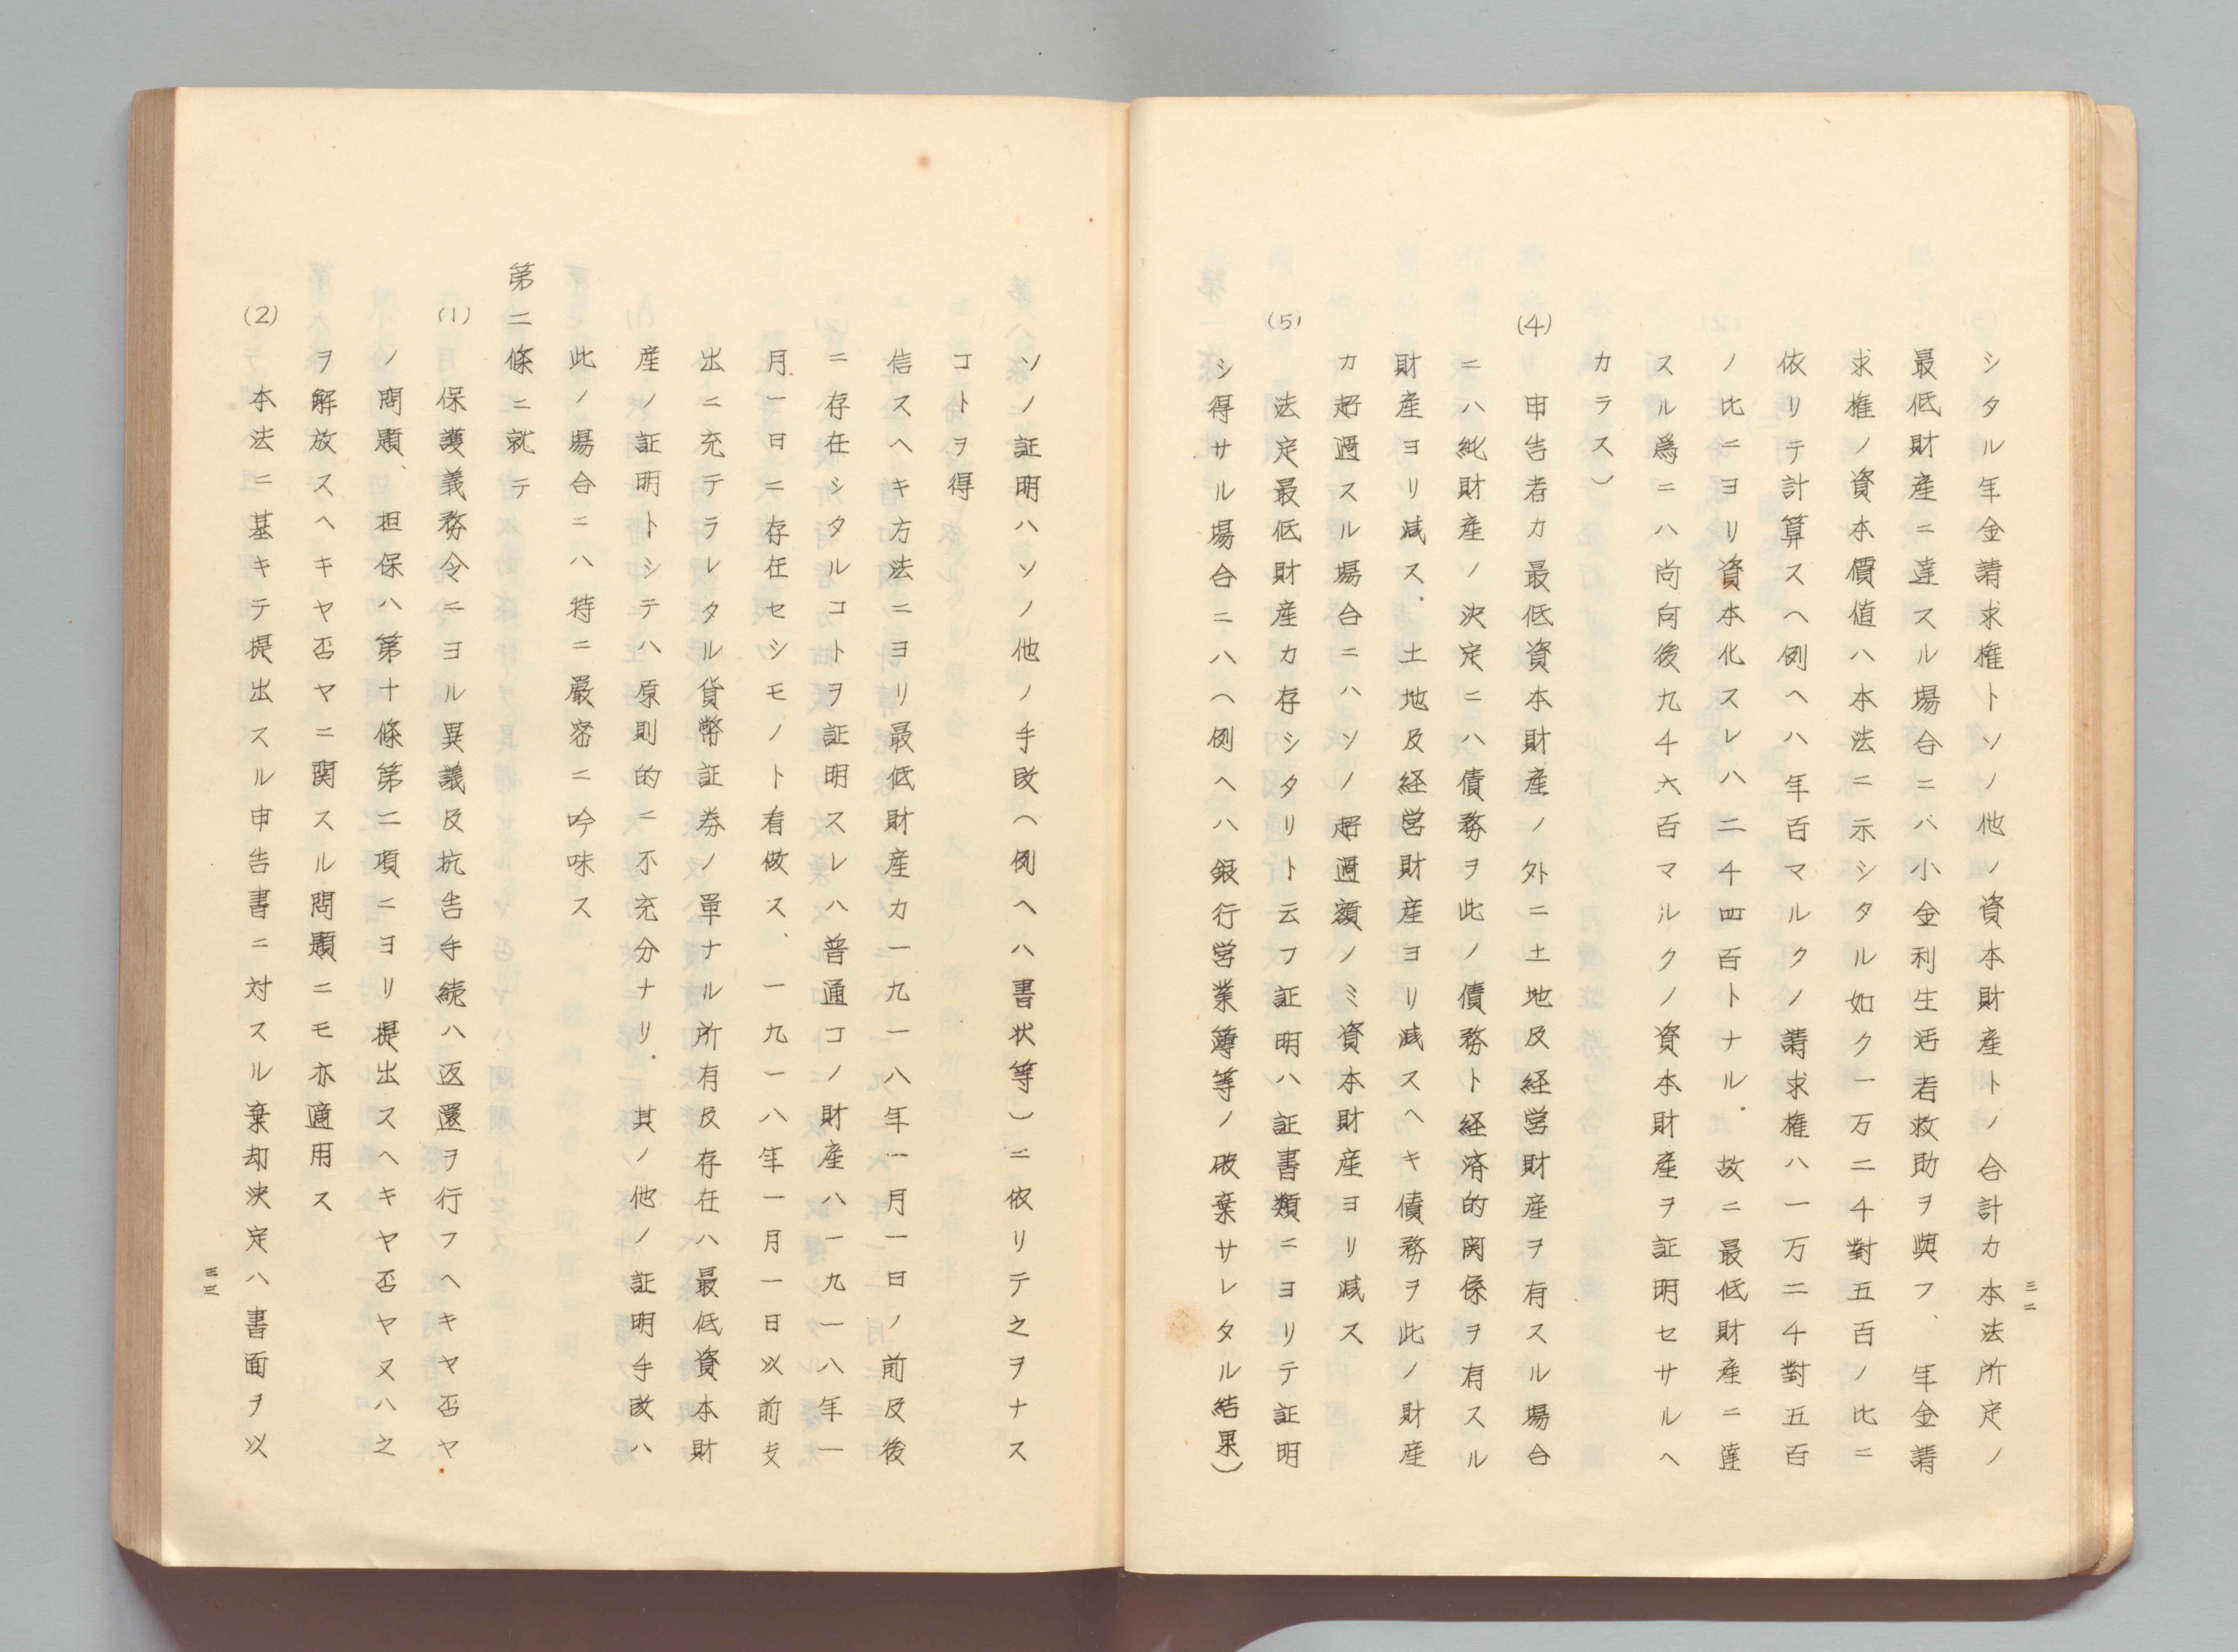 三二
シタル年金請求権トソノ他ノ資本財産トノ合計カ本法所定ノ
最低財産ニ達スル場合ニハ小金利生活者救助ヲ與フ、年金請
求権ノ資本價値ハ本法ニ示シタル如ク一万二千對五百ノ比ニ
依リテ計算スヘ例ヘハ年百マルクノ請求権ハ一万二千對五百
ノ比ニヨリ資本化スレハ二千四百トナル.故ニ最低財産ニ達
スル爲ニハ尚向後九千六百マルクノ資本財産ヲ証明セサルヘ
カラス)
(4) 申告者カ最低資本財産ノ外ニ土地及経営財産ヲ有スル場合
ニハ純財産ノ決定ニハ債務ヲ此ノ債務ト経済的関係ヲ有スル
財産ヨリ減ス.土地及経営財産ヨリ減スヘキ債務ヲ此ノ財産
カ超過スル場合ニハソノ超過額ノミ資本財産ヨリ減ス
(5) 法定最低財産カ存シタリト云フ証明ハ証書類ニヨリテ証明
シ得サル場合ニハ(例ヘハ銀行営業簿等ノ破棄サレタル結果)
ソノ証明ハソノ他ノ手段(例ヘハ書状等)ニ依リテ之ヲナス
コトヲ得
信スヘキ方法ニヨリ最低財産カ一九一八年一月一日ノ前及後
ニ存在シタルコトヲ証明スレハ普通コノ財産ハ一九一八年一
月一日ニ存在セシモノト看做ス、一九一八年一月一日以前支
出ニ充テラレタル貨幣証券ノ單ナル所有及存在ハ最低資本財
産ノ証明トシテハ原則的ニ不充分ナリ.其ノ他ノ証明手段ハ
此ノ場合ニハ特ニ嚴密ニ吟味ス
第二條ニ就テ
(1) 保護義務令ニヨル異議及抗告手続ハ返還ヲ行フヘキヤ否ヤ
ノ問題、担保ハ第十條第二項ニヨリ提出スヘキヤ否ヤ又ハ之
ヲ解放スヘキヤ否ヤニ関スル問題ニモ亦適用ス
(2) 本法ニ基キテ提出スル申告書ニ対スル棄却決定ハ書面ヲ以
三三